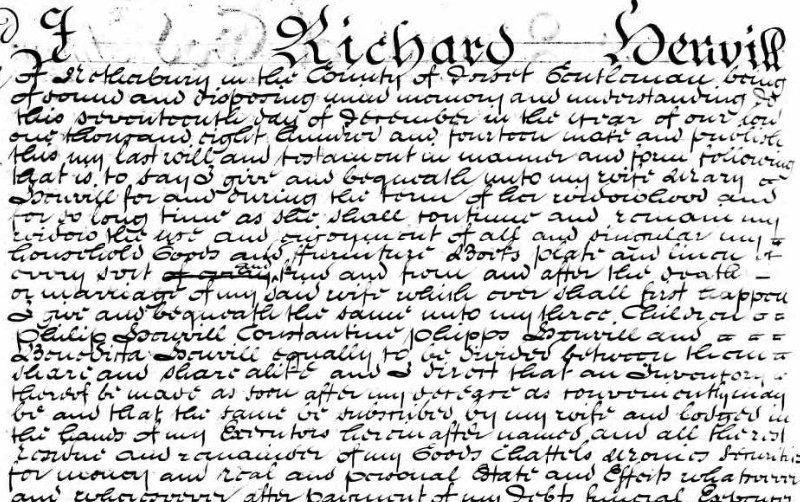 I Richard Henvill
of Netherbury in the County of Dorset Gentleman being
of sound and disposing mind memory and understanding do
this seventeenth day of December in the year of our Lord
one thousand eight hundred and fourteen make and publish
this my last will and testament in manner and form following
that is to say I give and bequeath unto my wife Mary
Henvill for and during the term of her widowhood and
for so long time as she shall continue and remain my
widow the use and enjoyment of all and singular my
household Goods and furniture Books plate and linen
every sort and from and after the death
or marriage of my said wife which ever shall first happen
I give and bequeath the same unto my three Children
Philip Henvill Constantine Phipps Henvill and
Benedicta Henvill equally to be divided between them
share and share alike and I direct that an Inventory
thereof be made as soon after my decease as conveniently may
be and that the same be subscribed by my wife and lodged in
the hands of my Executors herein after named and all the rest
residue and remainder of my Goods Chattels Monies Securities
for money and real and personal Estate and Effects whatsoever
and wheresoever after payment of my Debts funeral